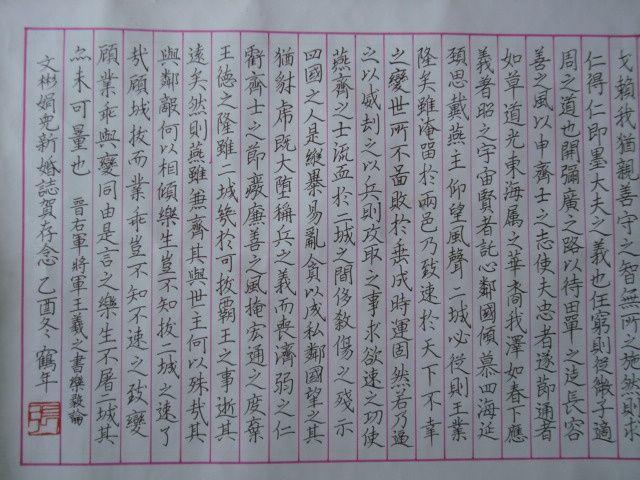 戈賴我猶親善守之智無所之施然則求
仁得仁即墨大夫之義也任窮則從微子適
周之道也開彌廣之路以待田單之徒長容
善之風以申齊士之志使夫忠者遂節通者
如草道光東海属之華裔我澤如春下應
義者昭之宇宙賢者託心鄰國傾慕四海延
頸思戴燕主仰望風聲二城必從則王業
隆矣雖淹留於兩邑乃致速於天下不幸
之變世所不啚敗於垂成時運固然若乃逼
之以威刦之以兵則攻取之事求欲速之功使
燕齊之士流血於二城之間侈殺傷之殘示
四國之人是縱暴易亂貪以成私鄰國望之其
猶豺虎既大墮稱兵之義而喪濟弱之仁
虧齊士之節廢廉善之風掩宏通之度棄
王德之隆雖二城幾於可拔霸王之事逝其
遠矣然則燕雖兼齊其與世主何以殊哉其
與鄰敵何以相傾樂生豈不知拔二城之速了
哉顧城拔而業乖豈不知不速之致變
顧業乖與變同由是言之樂生不屠二城其
亦未可量也 晉右軍將軍王羲之書樂毅論
文彬娟兒新婚誌賀存念 乙酉冬 鶴年